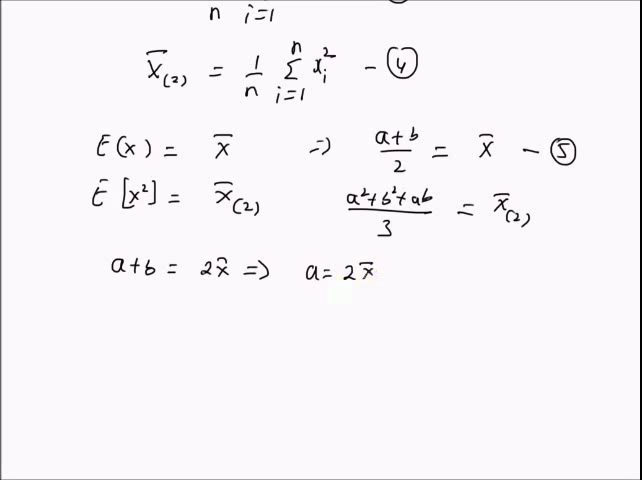 n i=1
x̄₍₂₎ = 1/n Σ_{i=1}^{n} xᵢ² – ④
E(x) = x̄ ⇒ (a+b)/2 = x̄ – ⑤
E[x²] = x̄₍₂₎ (a²+b²+ab)/3 = x̄₍₂₎
a+b = 2x̄ ⇒ a = 2x̄